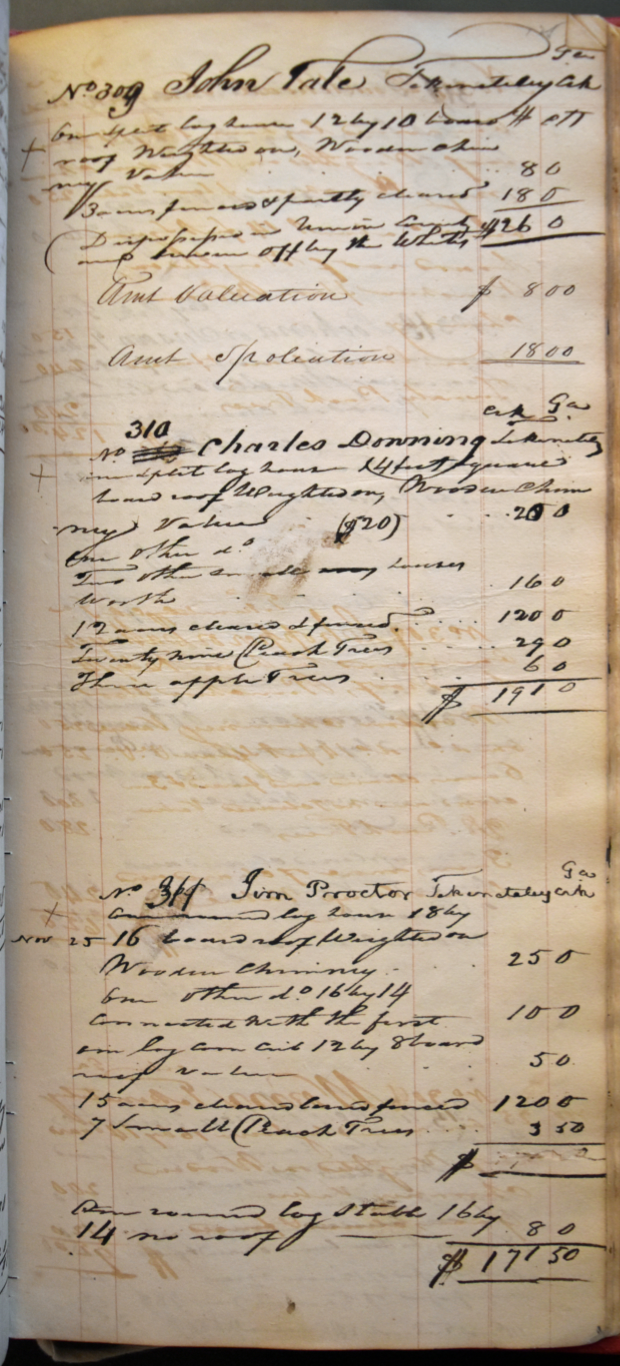 Ga
No 309 John Tale Tekinateley Crk
One split log house 12 by 10 board $ cts
roof Weighted on, Wooden chim
ney Value . . . 8 0
3 acres fenced & partly cleared 18 0
Dispossessed in Union County $26 0
and driven off by the Whites
Amt Valuation $ 8 00
Amt Spoliation 18 00
crk Ga
310
No Charles Downing Tekinetley
one split log house 14 feet square
board roof Weighted on, Wooden Chim
ney Value ($20) . . 20 0
One other do
Two other small houses
Worth . . . 16 0
12 acres cleared & fenced . . 120 0
Twenty nine Peach Trees . . . 29 0
Three apple Trees . . . 6 0
$ 191 0
Ga
No 311 Jim Proctor Tekinateley crk
One round log house 18 by
Nov 25 16 board roof Weighted on
Wooden Chimney . 25 0
One other do 16 by 14
connected with the first 10 0
one log corn crib 12 by 8 board
roof Value . . 5 0
15 acres cleared land fenced 120 0
7 small Peach Trees . . . 3 50
$
One round log stable 16 by
14 no roof 8 0
$ 171 50